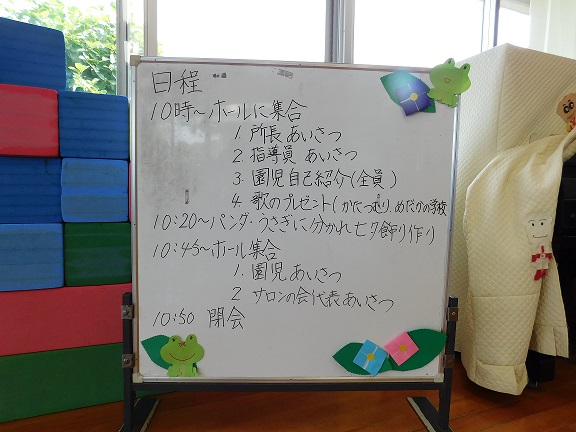 日程
10時～ホールに集合
1. 所長あいさつ
2. 指導員 あいさつ
3. 園児自己紹介(全員)
4. 歌のプレゼント(かたつむり、めだかの学校
10:20～パンダ・うさぎに分かれ七夕飾り作り
10:45～ホール集合
1. 園児あいさつ
2 サロンの会代表あいさつ
10:50 閉会